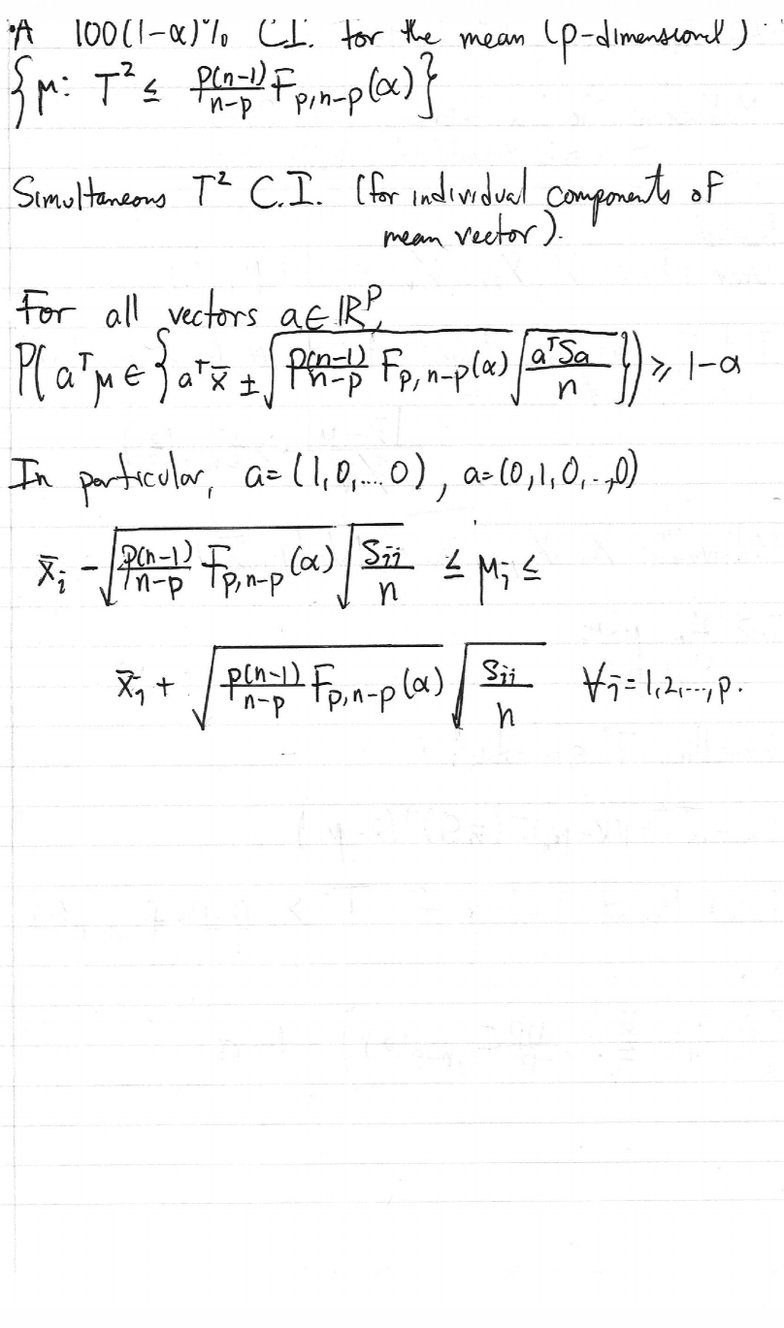 •A 100(1-α)% C.I. for the mean (p-dimensional)
{μ: T² ≤ p(n-1)/n-p F_{p,n-p}(α)}
Simultaneous T² C.I. (for individual components of
mean vector).
For all vectors a∈ℝᵖ,
P(aᵀμ ∈ {aᵀx̄ ± √(p(n-1)/n-p F_{p,n-p}(α)) √(aᵀSa/n)}) ≥ 1-α
In particular, a=(1,0,...0), a=(0,1,0,..,0)
x̄ⱼ - √(p(n-1)/n-p F_{p,n-p}(α)) √(Sⱼⱼ/n) ≤ μⱼ ≤
x̄ⱼ + √(p(n-1)/n-p F_{p,n-p}(α)) √(Sⱼⱼ/n) ∀j=1,2,...,p.